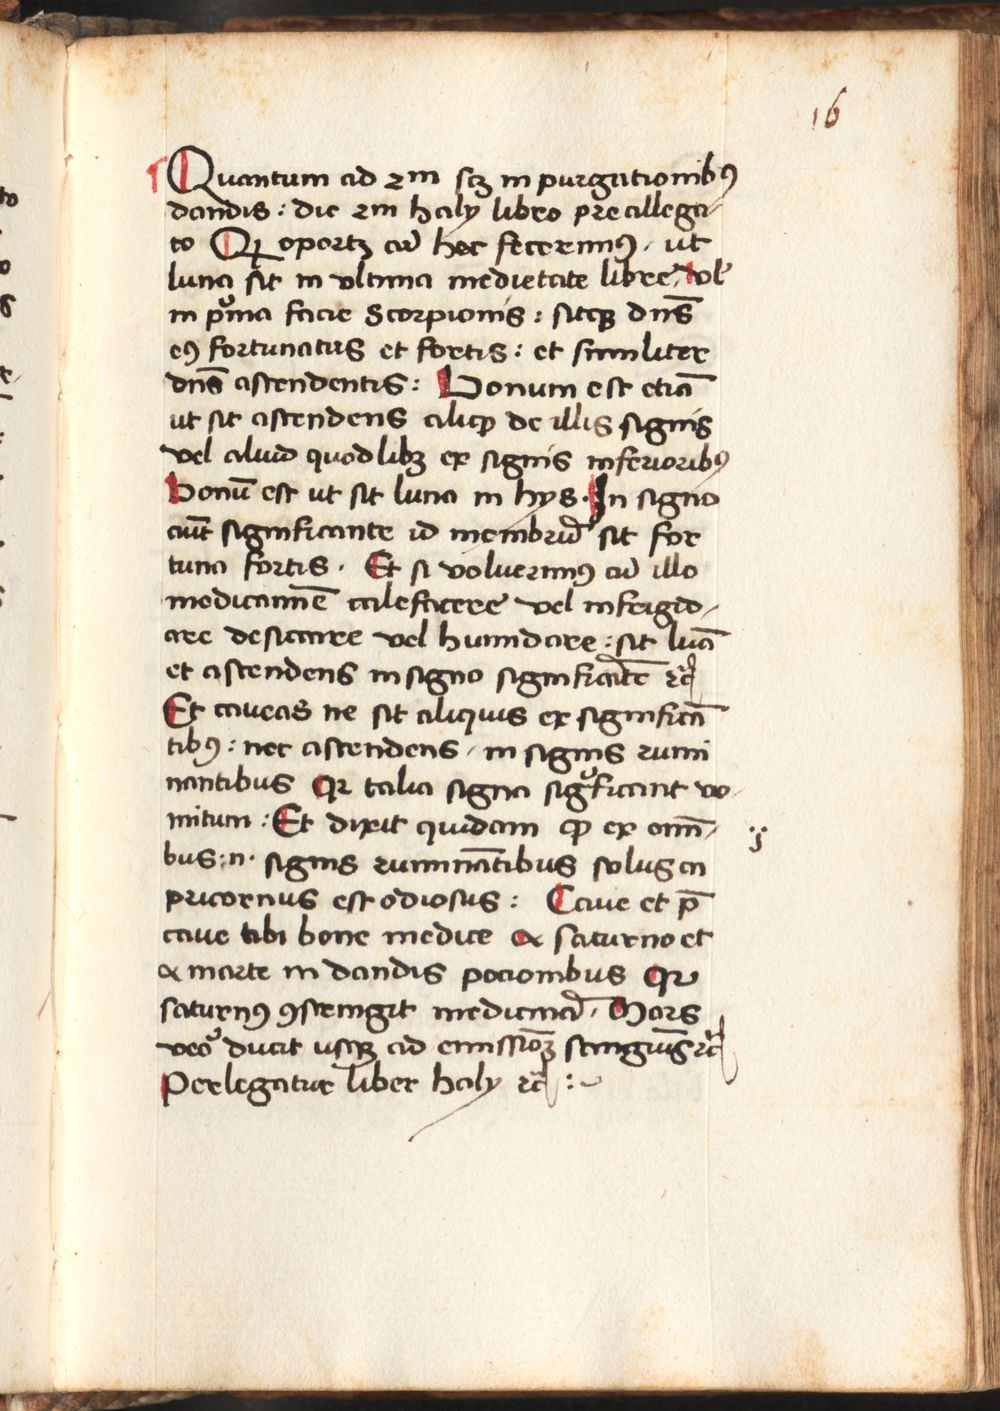 16
¶ Quantum ad 2m scꝫ in purgationibꝰ
dandis : dic 2m haly libro preallega-
to Qꝛ oportꝫ cū hec fecerimꝰ . ut
luna sit in vltima medietate libre, vel̄
in pͥma facie Scorpionis : sitqꝫ dn̄s
eꝰ fortunatus et fortis : et similiter
dn̄s ascendentis : Bonum est etiā
ut sit ascendens aliqꝫ de illis signis
vel aliud quodlibꝫ ex signis inferioribꝰ
Bonū est ut sit luna in hys . In signo
aūt significante id membrū sit for
tuna fortis . Et si voluerimꝰ cū illo
medicamīe calefacere vel infrigid-
are desiccare vel humidare : sit luā
et ascendens in signo significāte ꝛc̄
Et caveas ne sit aliquis ex significā
tibꝰ : nec ascendens , in signis rumi
nantibus Qꝛ talia signa sigͥficant vo-
mitum : Et dixit quidam ꝙ ex omī-
bus : n . signis ruminātibus solus ca
pricornus est odiosus : Cave et p̄
cave tibi bone medice a saturno et
a marte in dandis pocionibus Qꝛ
saturnꝰ ꝯstringit medicinā . Mars
veͦ ducit usqꝫ ad emissiōꝫ sanguīs ꝛc̄
Perlegatur liber haly ꝛc̄ :~